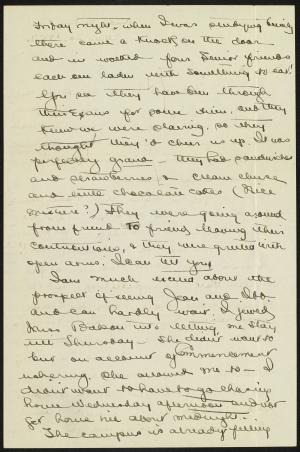 Friday night, when I was studying busily
there came a knock on the door
and in walked four Senior friends
each one laden with something to eat!
You see they have been through
their exams for some time, and they
knew we were slaving, so they
thought they'd cheer us up. It was
perfectly grand - they had sandwiches
and strawberries & cream cheese
and little chocolate cakes (Nice
mixture?) They were going around
from friend to friend leaving their
contributions, & they were greeted with
open arms. I can tell you!
I am much excited about the
prospect of seeing Jean and
and can hardly wait. I
Miss into letting me stay
till Thursday - she didn't want to
but on account of Commencement
ushering. She allowed me to - I
didn't want to have to go chasing
home Wednesday afternoon and not
get home till about midnight.
The campus is already filling